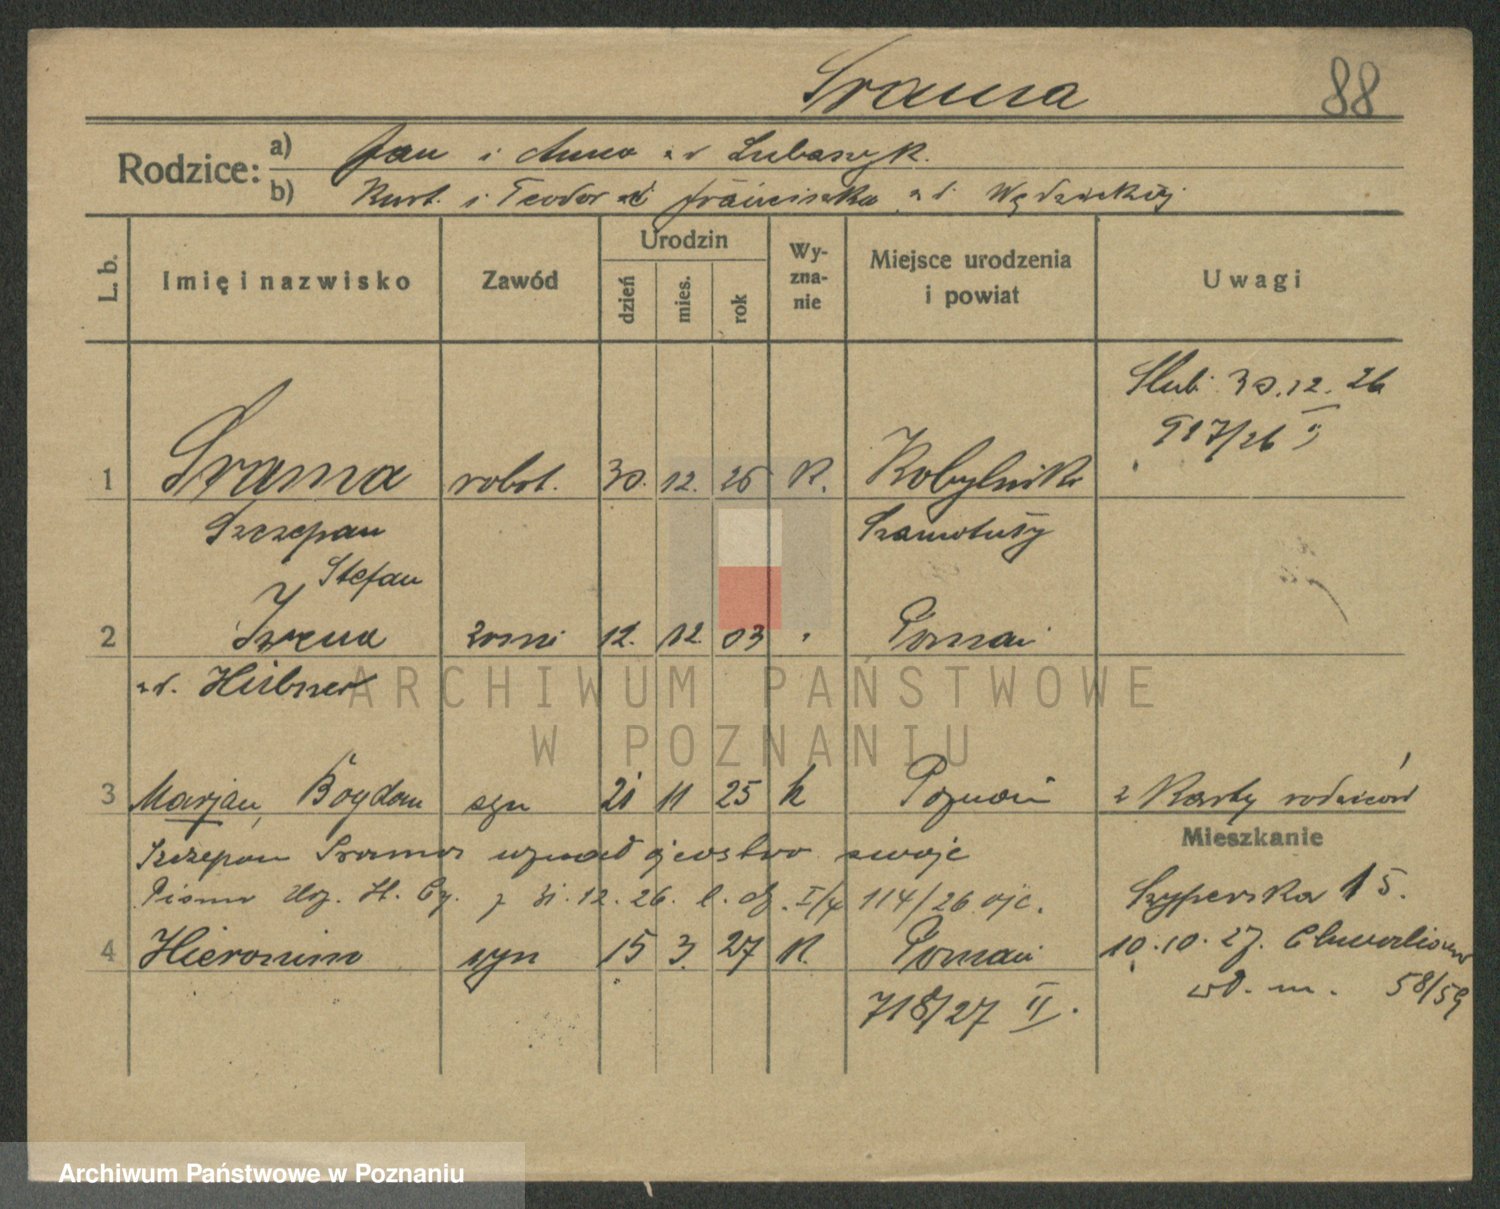 Srama 88
Rodzice: a) Jan i Anna z d Lubaszyk.
b) i Teodor Franciszka z d.
L. b. Imię i nazwisko Zawód Urodzin dzień mies. rok Wy-zna-nie Miejsce urodzenia i powiat Uwagi
Ślub 30.12.26
917/26 II
1 Srama robot. 30. 12. K. Kobylniki
Szczepan Szamotuły
Stefan
2 Irena żona 12. 12. 03 " Poznań
z d. Hübner
3 Marjan, Bogdan syn 21 11 25 k Poznań z Karty rodziców
Mieszkanie
Szczepan Srama uznał ojcostwo swoje
Pismo 12. 26. l. dz. I/4 114/26 ojc.
Szyperska 15.
4 Hieronim syn 15 3. 27 K. Poznań 10.10.27. Chwaliszewo
wł. m. 58/59
718/27 II.
ARCHIWUM PAŃSTWOWE
W POZNANIU
Archiwum Państwowe w Poznaniu